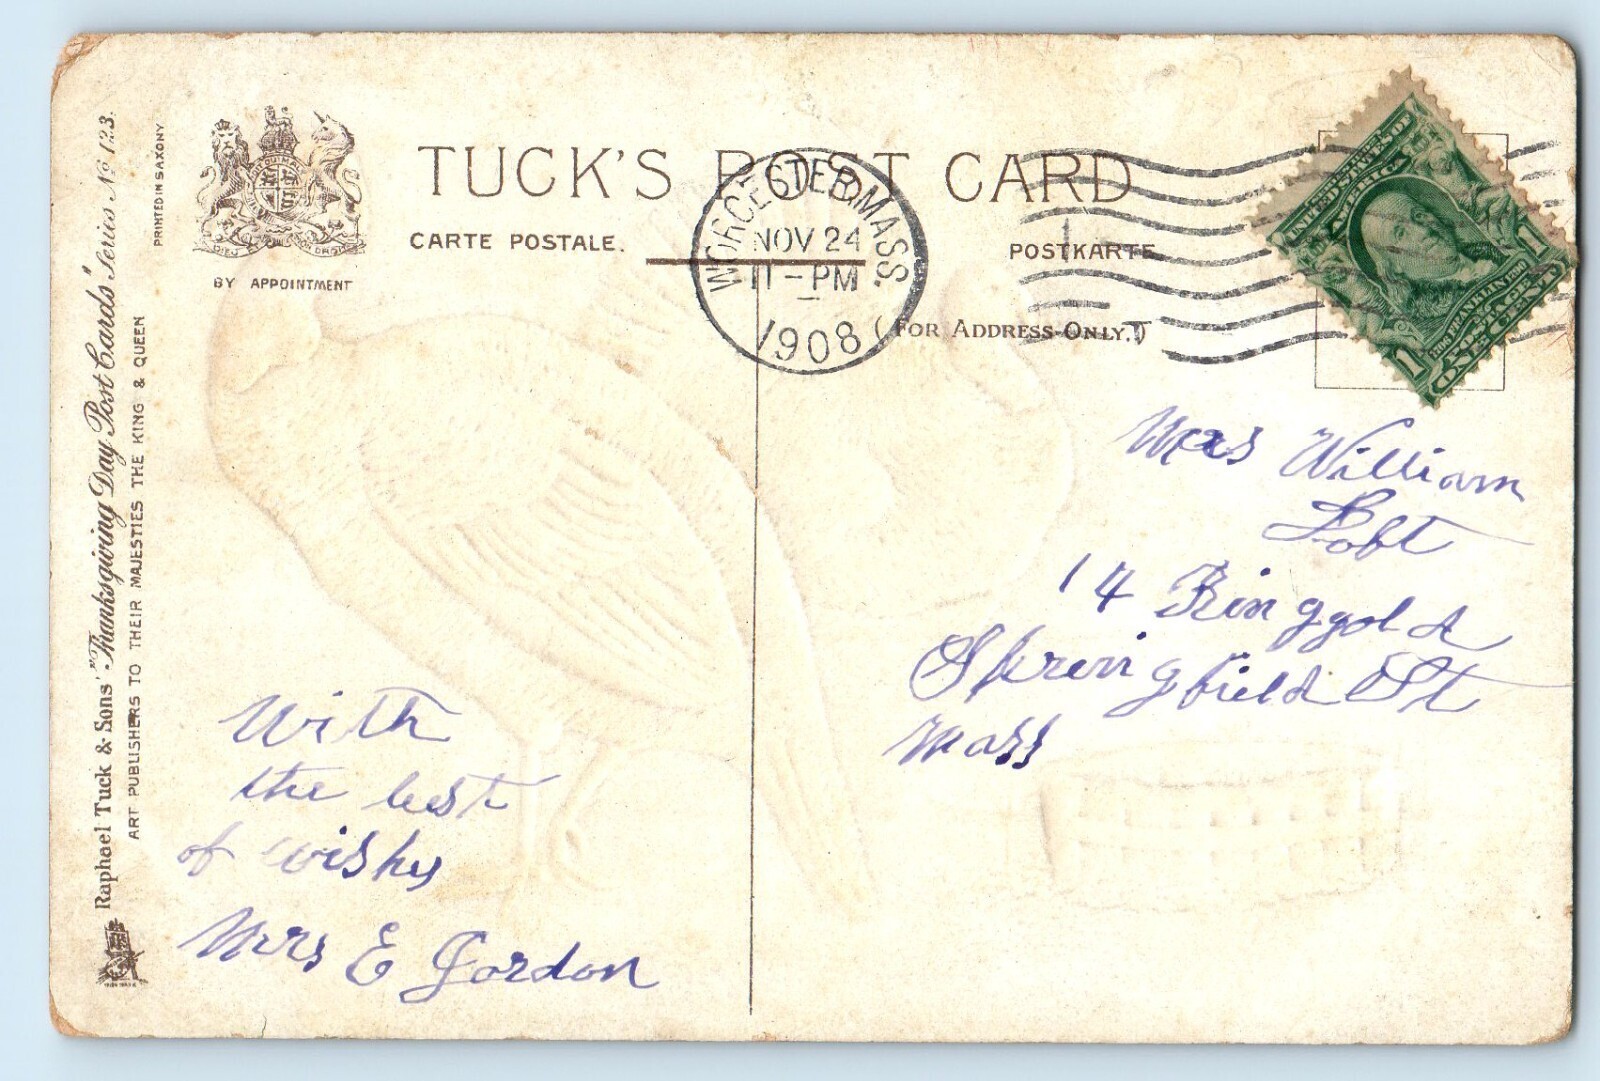 Raphael Tuck & Sons' "Thanksgiving Day Post Cards" Series No 123.
ART PUBLISHERS TO THEIR MAJESTIES THE KING & QUEEN
PRINTED IN SAXONY
BY APPOINTMENT
TUCK'S POST CARD
CARTE POSTALE.
POSTKARTE
(FOR ADDRESS ONLY.)
WORCESTER, MASS.
NOV 24
11-PM
1908
UNITED STATES OF
AMERICA
FRANKLIN
1 ONE CENT 1
Mrs William
14 Ringgold
Springfield St
Mass
With
the best
of wishy
Mrs E Gordon